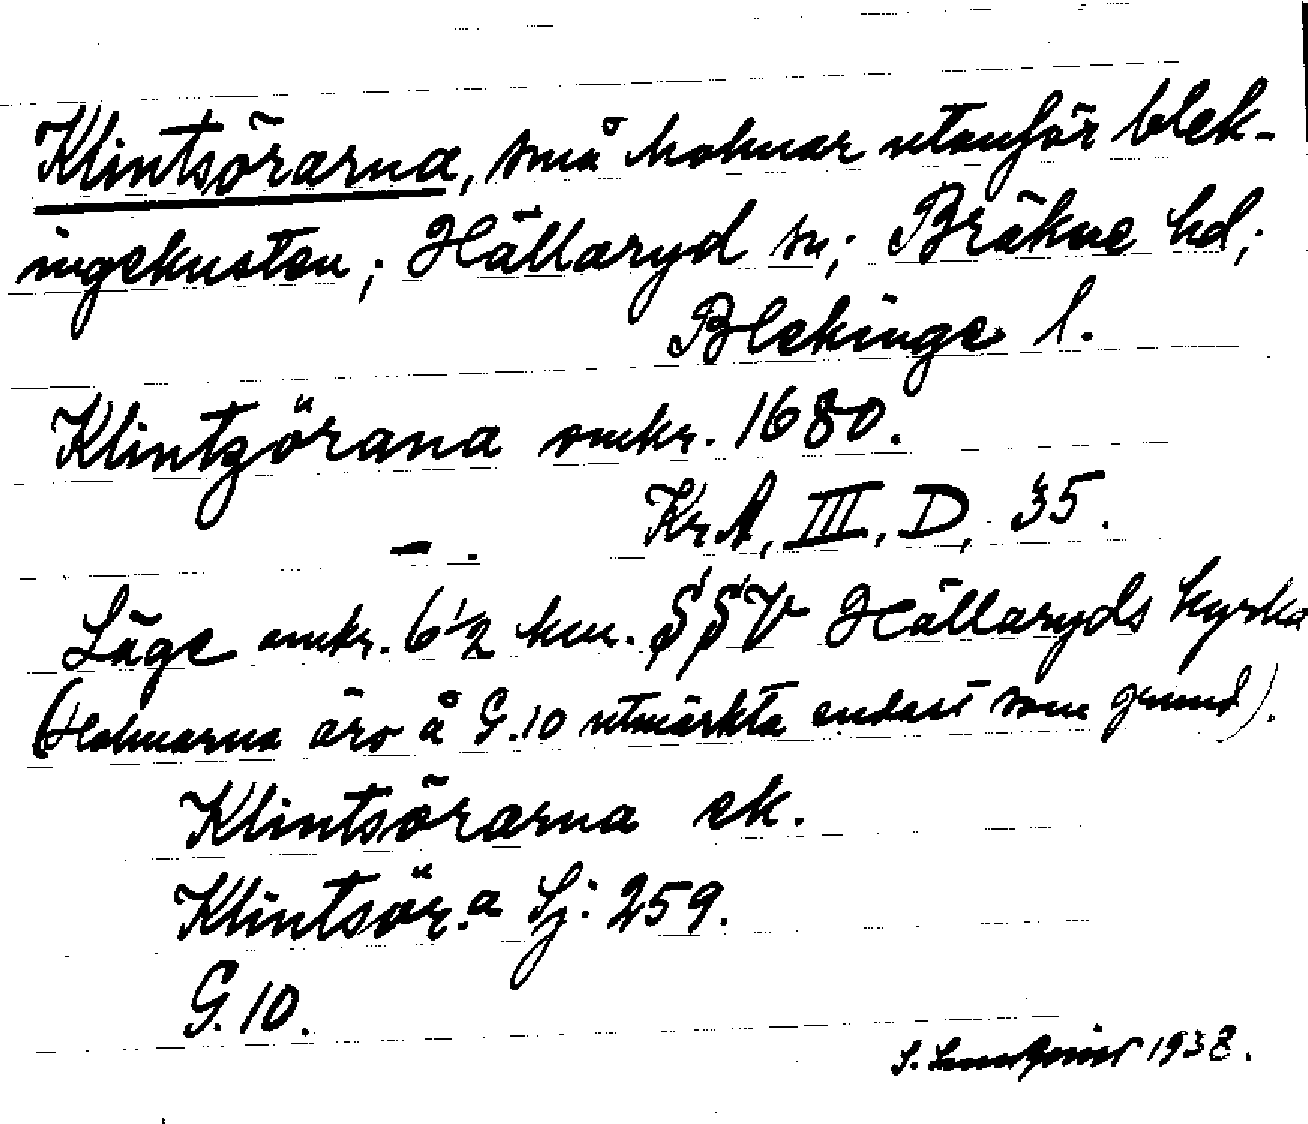 Klintsörarna, små holmar utanför blek-
ingekusten; Hällaryd sn; Bräkne hd;
Blekinge l.
Klintzörana omkr. 1680.
KrA, III, D, 35.
— .
Läge omkr. 6 1/2 km. SSV Hällaryds kyrka
(Holmarna äro å G.10 utmärkta endast som grund).
Klintsörarna ek.
Klintsör.a Sj: 259.
G.10.
S. 1938.